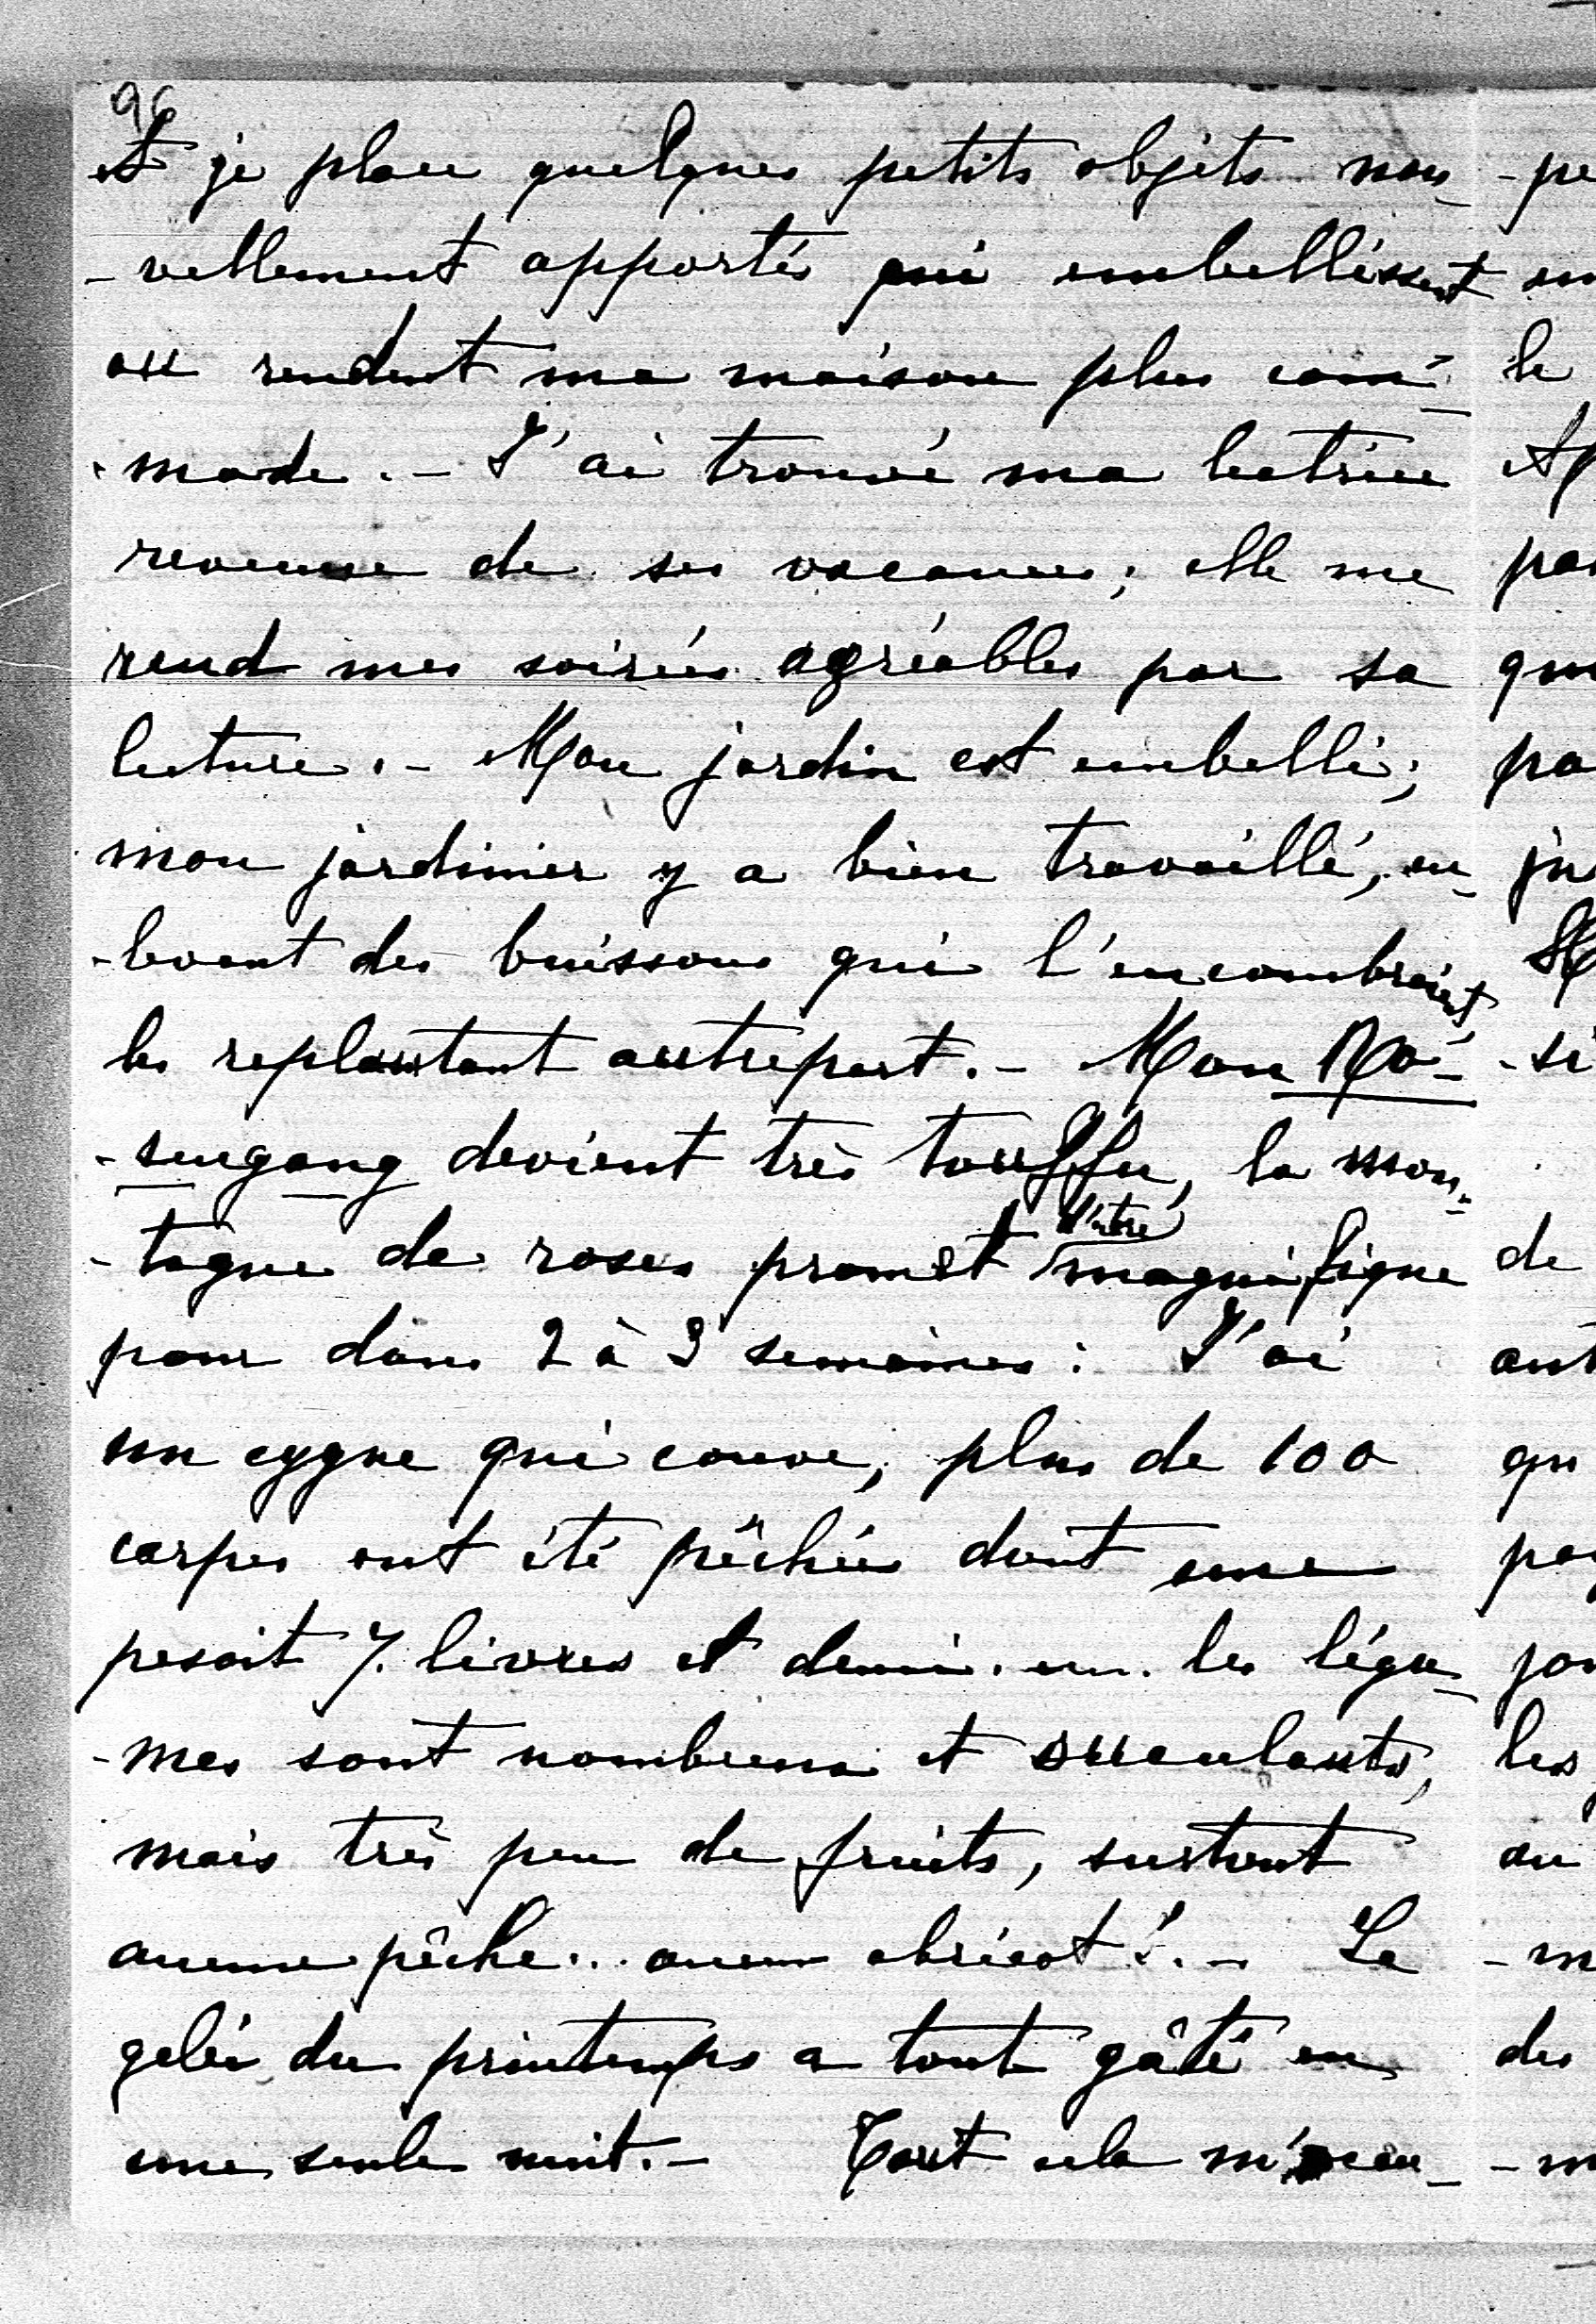 96
et je place quelques petits objets nou-
-vellement apportés qui embellissent
ou rendent ma maison plus com-
-mode. - J'ai trouvé ma lectrice
revenue de ses vacances; elle me
rend mes soirées agréables par sa
lecture. - Mon jardin est embelli;
mon jardinier y a bien travaillé, en-
-levant des buissons qui l'encombraient
les replantant autrepart. - Mon Ro-
-sengang devient très touffu, la mon-
-tagne de roses promet d'être magnifique
pour dans 2 à 3 semaines: J'ai
un cygne qui couve, plus de 100
carpes ont été pêchées dont une
pesait 7. livres et demi. les légu-
-mes sont nombreux et succulents,
mais très peu de fruits, surtout
aucune pêche... aucun abricot!. - La
gelée du printemps a tout gâté en
une seule nuit. - Tout cela m'occu-